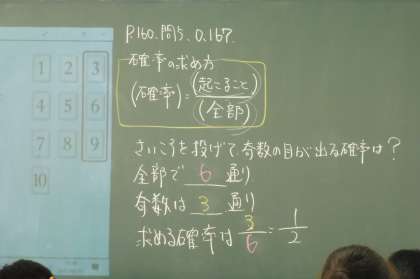 P.160.問5、0.167.
確率の求め方
(確率)=(起こること)/(全部)
さいころを投げて奇数の目が出る確率は?
全部で 6 通り
奇数は 3 通り
求める確率は 3/6 = 1/2
1 2 3
4 5 6
7 8 9
10